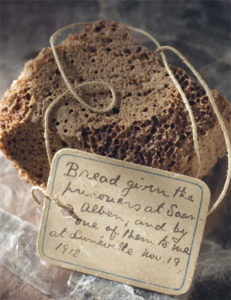 Bread given the
prisoners at Saar
Alben, and by
one of them to me
at Lunéville Nov. 19
1918